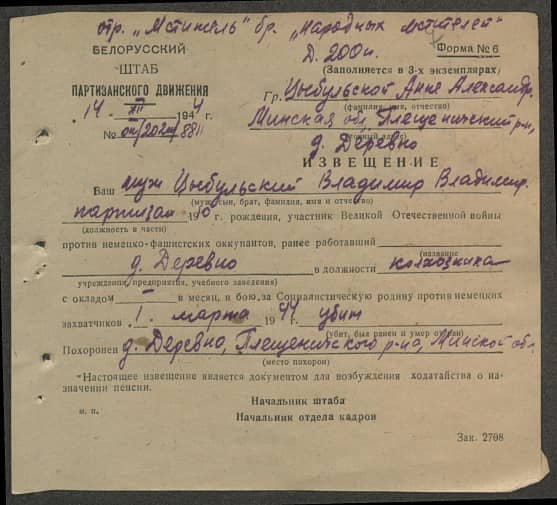 отр. „Мститель" бр. „Народных мстителей"
Д. 200 н.
БЕЛОРУССКИЙ
ШТАБ
ПАРТИЗАНСКОГО ДВИЖЕНИЯ
Форма № 6
(Заполняется в 3-х экземплярах)
14 XII 1944
№
Гр. Цыбульской Анне Александр.
(фамилия, имя, отчество)
Минская обл. Плещеничский р-н,
д. Деревно
ИЗВЕЩЕНИЕ
Ваш муж Цыбульский Владимир Владимир.
(муж, сын, брат, фамилия, имя и отчество)
партизан г. рождения, участник Великой Отечественной войны
(должность в части)
против немецко-фашистских оккупантов, ранее работавший
(название
д. Деревно в должности колхозника
учреждения, предприятия, учебного заведения)
с окладом — в месяц, и бою за Социалистическую родину против немецких
захватчиков 1. марта 1944 г. убит
(убит, был ранен и умер от ран)
Похоронен д. Деревно, Плещеничского р-на, Минской обл.
(место похорон)
Настоящее извещение является документом для возбуждения ходатайства о на-
значении пенсии.
Начальник штаба
м. п.
Начальник отдела кадров
Зак. 2708